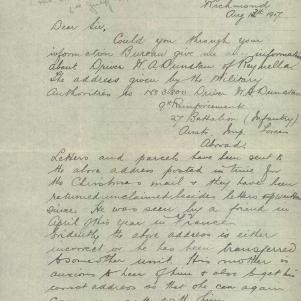 Richmond
Aug 13th 1917.
Dear Sir,
Could you through your
information Bureau give me information
about Driver W. A. Dunstan of Reynella
The address given by the Military
Authorities is No 3800 Driver W. A. Dunstan
9th Reinforcements
27 Battalion (Infantry)
Aust. Imp. Forces
Abroad.
Letters and parcels have been sent to
the above address posted in time for
the Christmas mail & they have been
returned unclaimed besides letters written
since. He was seen by a friend in
April of this year in France.
Evidently the above address is either
incorrect or he has been transferred
to some other unit. His mother is
anxious to hear of him & also to get his
correct address so that she can again